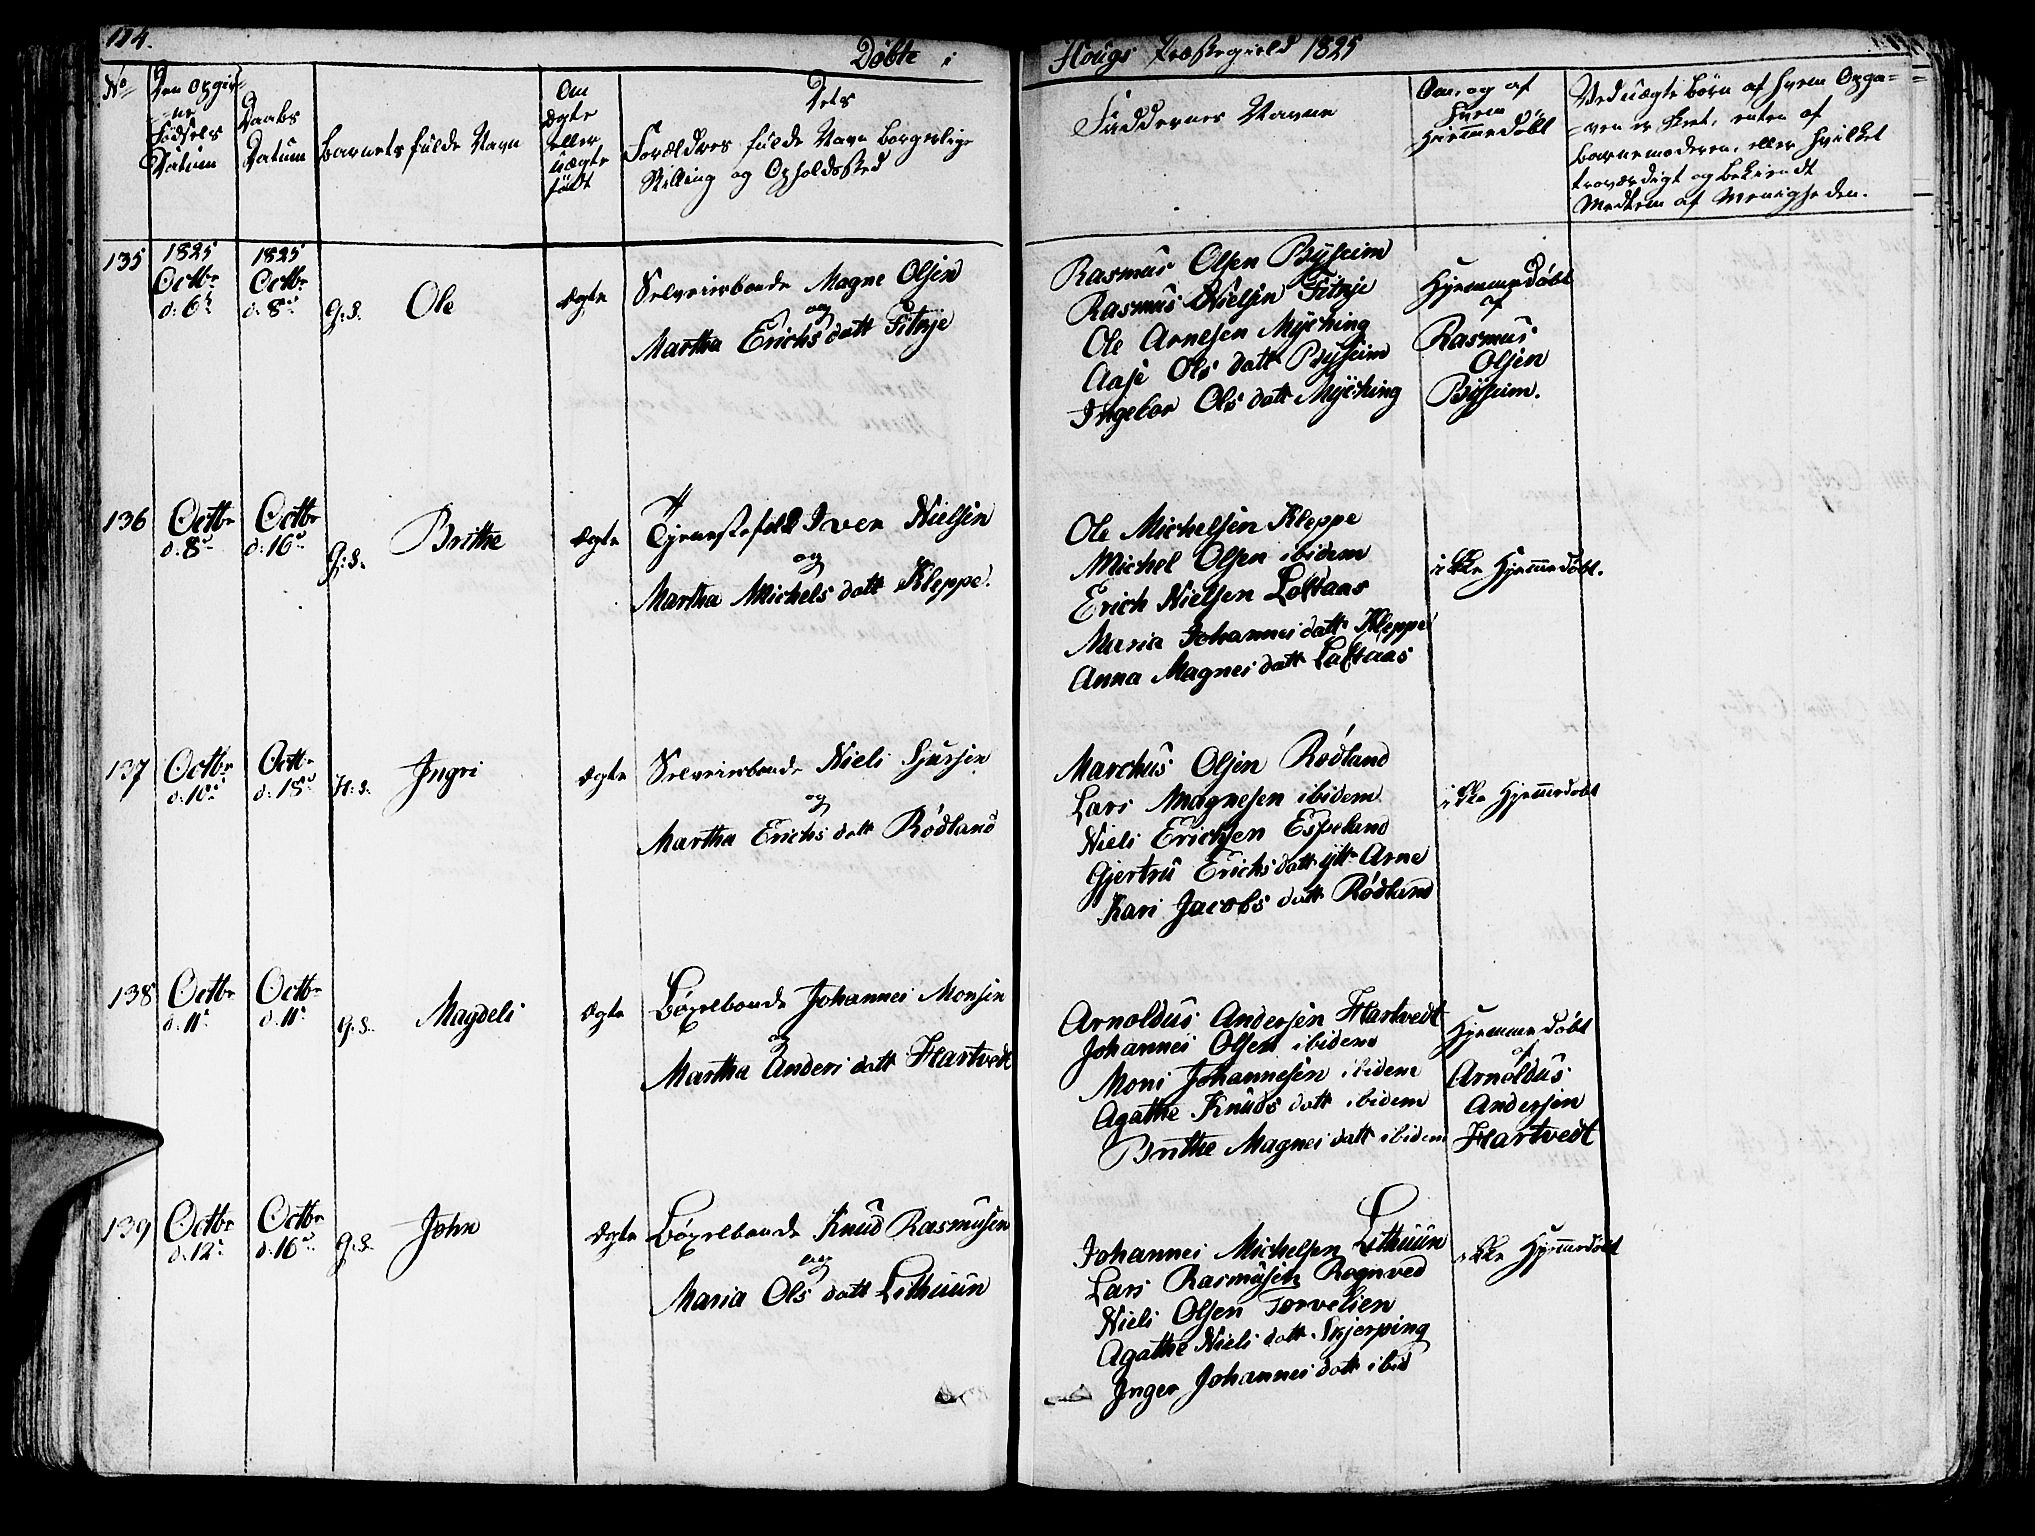 114.
Döbte i
Hougs Præstegield 1825
No
Den Opgiv=
=ne
Födsels
Datum
Daabs
Datum
Barnets fulde Navn
Om
Ægte
eller
uægte
födt
Dets
Forældres fulde Navn Borgerlige
Stilling og Opholdssted
Faddernes Navne
Om, og af
hvem
Hjem̅edöbt
Ved uægte Börn af hvem Opga=
=ven er skeet, enten af
Barnemoderen, eller hvilket
troværdigt og bekiendt
Medlem af Menigheden.
135
1825
Octbr
d. 6t
1825
Octbr
d. 8d
G: S.
Ole
Ægte
Selveierbonde Magne Olsen
og
Martha Erichs datt Fitnje
Rasmus Olsen Byseim
Rasmus Nielsen Fitnje
Ole Arnesen Myching
Aase Ols datt Byseim
Ingebor Ols datt Myching
Hjemmedöbt
af
Rasmus
Olsen
Byseim.
136
Octbr
d: 8d
Octbr
d: 16d
G: S.
Brithe
Ægte
Tjenestefolk Iver Nielsen
og
Martha Michels datt Kleppe.
Ole Michelsen Kleppe
Michel Olsen ibidem
Erich Nielsen Loftaas
Maria Johannes datt Kleppe
Anna Magnes datt Loftaas
ikke Hjem̅edöbt.
137
Octbr
d: 10d
Octbr
d: 18d
H: S.
Ingri
Ægte
Selveierbonde Niels Sjursen
og
Martha Erichs datt Rödland
Marchus Olsen Rödland
Lars Magnesen ibidem
Niels Erichsen Espeland
Gjertru Erichs datt ytt Arne
Kari Jacobs datt Rödland
ikke Hjem̅edöbt
138
Octbr
d: 11t
Octbr
d: 11t
G: S.
Magdeli
Ægte
Böxelbonde Johannes Monsen
og
Martha Anders datt Hartvedt
Arnoldus Andersen Hartvedt
Johannes Olsen ibidem
Mons Johannesen ibidem
Agathe Knuds datt ibidem
Brithe Magnes datt ibidem
Hjemmedöbt
af
Arnoldus
Andersen
Hartvedt
139
Octbr
d: 12t
Octbr
d: 16d
G: S.
John
Ægte
Böxelbonde Knud Rasmusen
og
Maria Ols datt Lithuun
Johannes Michelsen Lithuun
Lars Rasmusen Rognved
Niels Olsen Torvelien
Agathe Niels datt Skjerping
Inger Johannes datt ibid
ikke Hjem̅edöbt